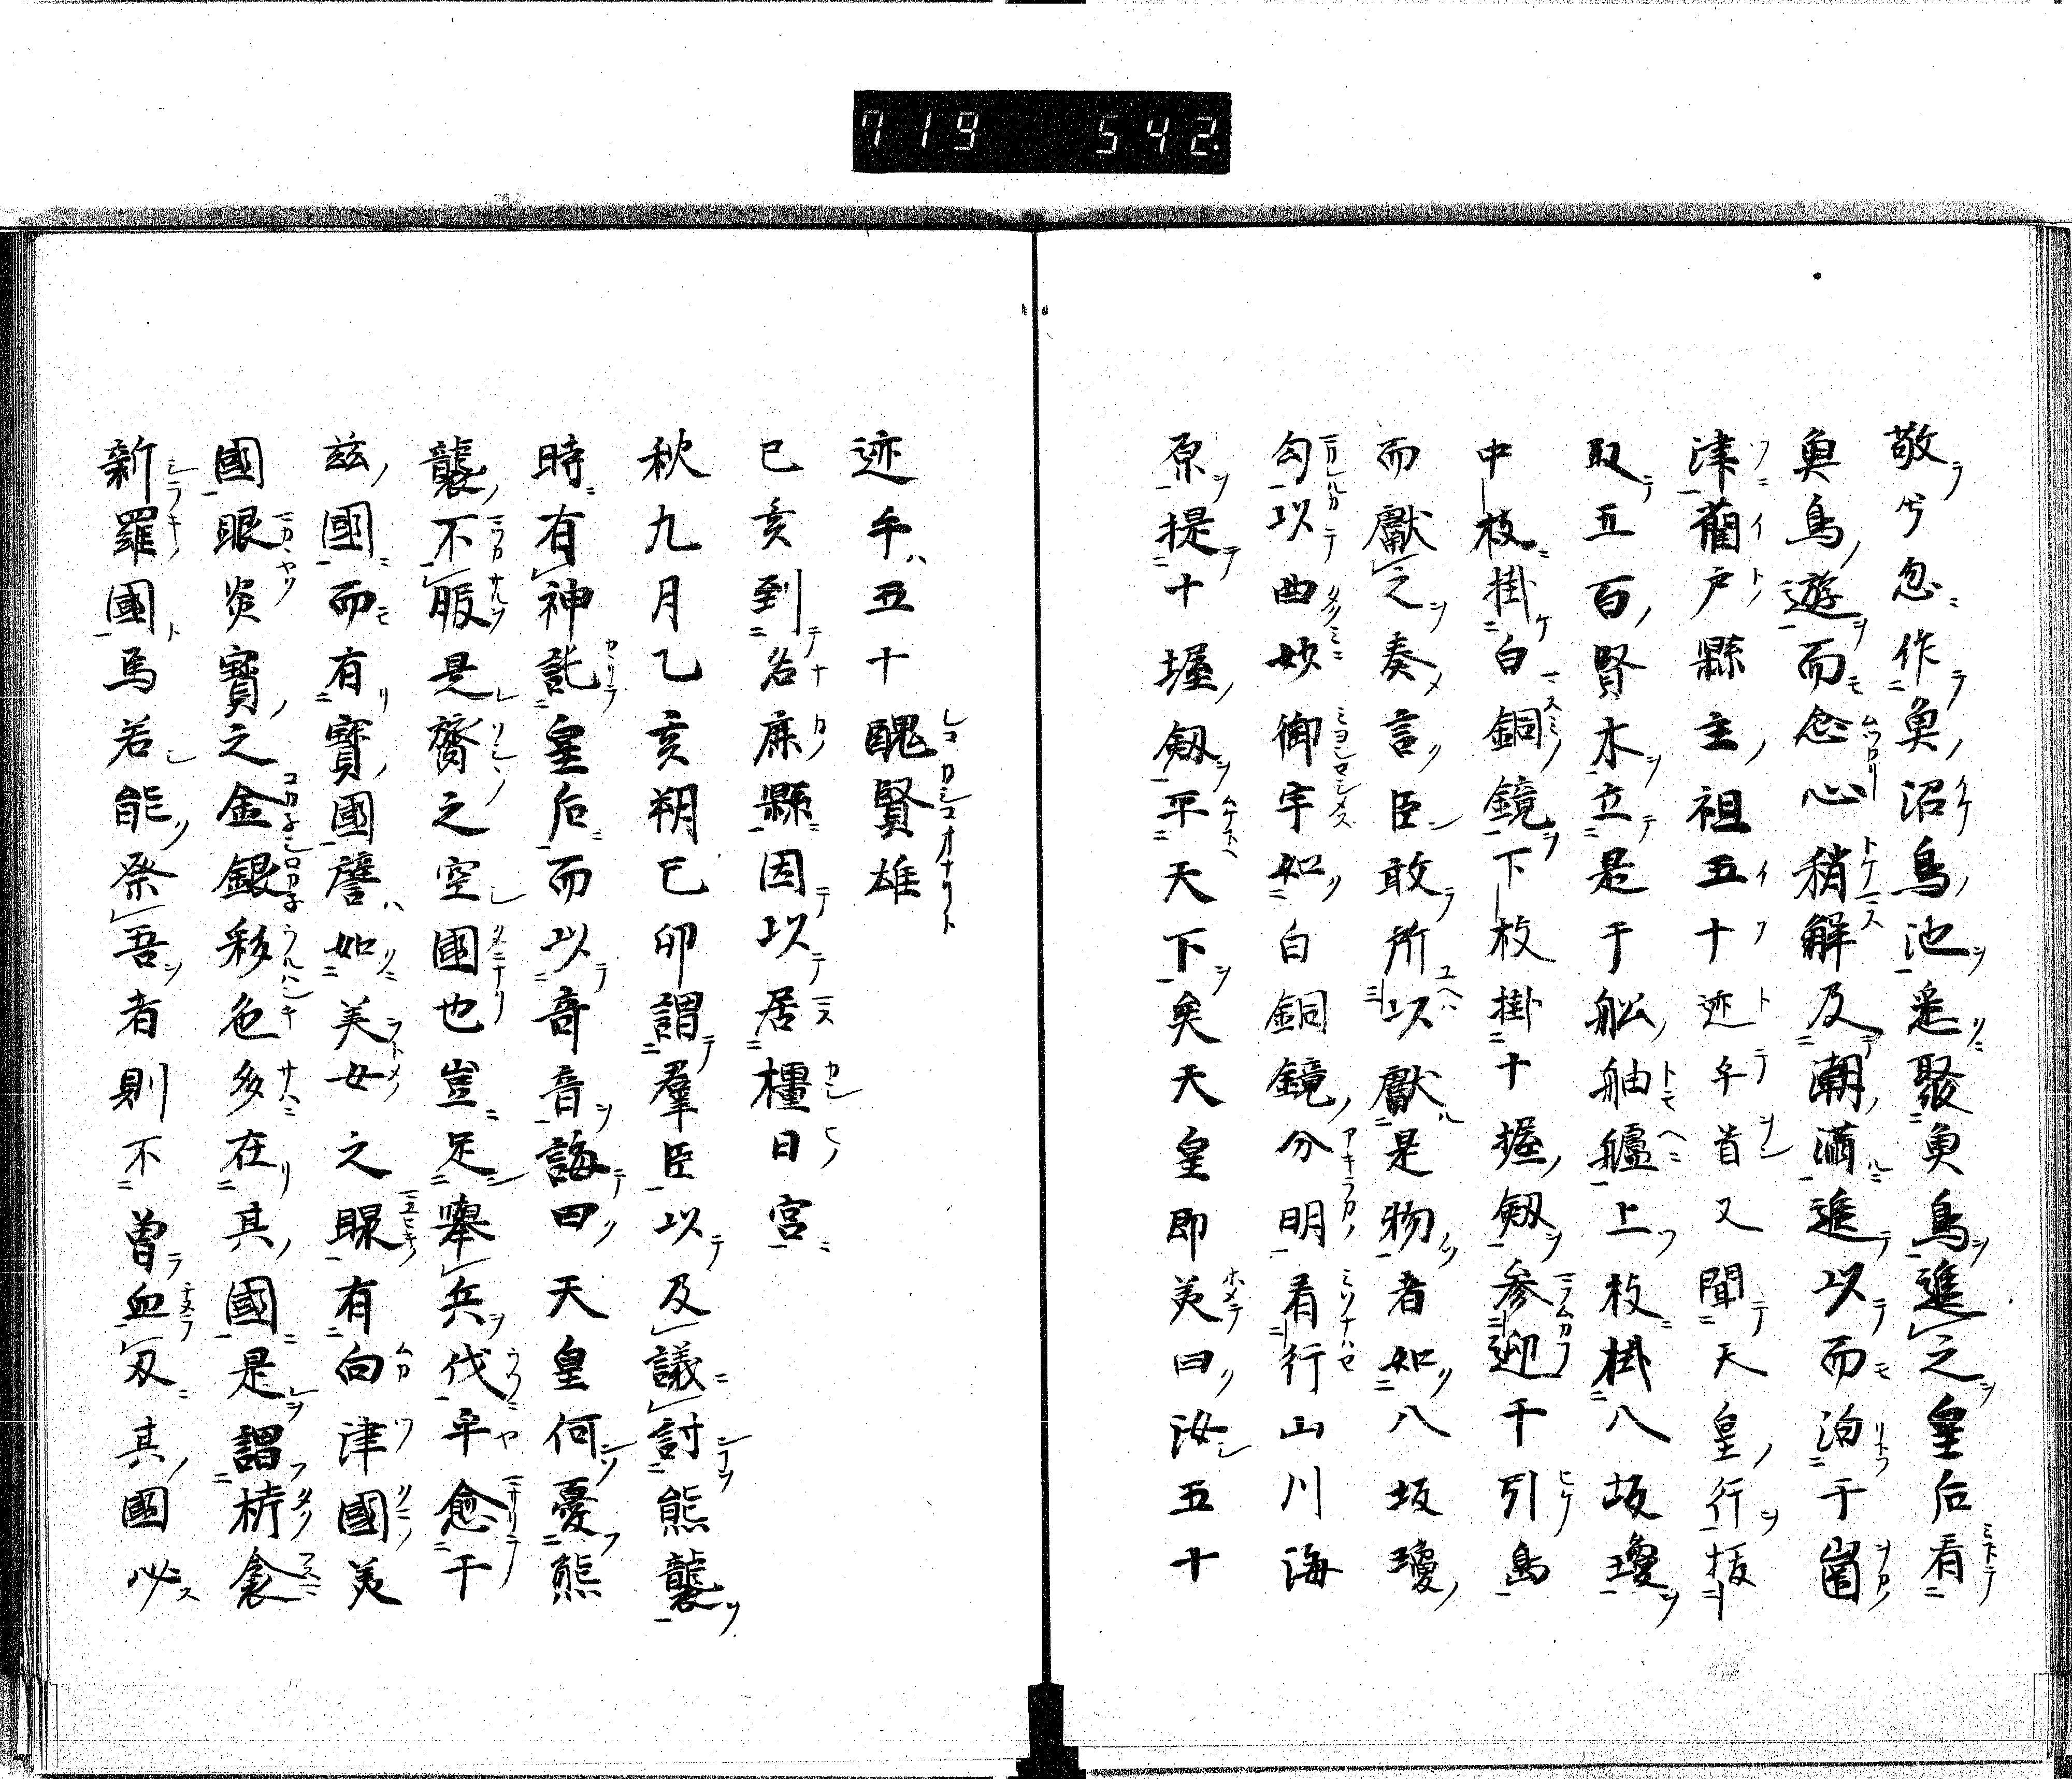 719 542.
敬兮忽作魚沼鳥池悉聚魚鳥進之皇后看
魚鳥遊而忿心稍解及潮滿進以而泊于崗
津藺戸縣主祖五十迹手首又聞天皇行抜
取五百賢木立是于舩舳艫上枝掛八坂瓊
中枝掛白銅鏡下枝掛十握劔参迎于引島
而獻之奏言臣敢所以獻是物者如八坂瓊
勾以曲妙御宇如白銅鏡分明看行山川海
原提十握劔平天下矣天皇即美曰汝五十
迹手五十醜賢雄
已亥到名麻縣因以居橿日宮
秋九月乙亥朔已卯謂羣臣以及議討熊襲
時有神託皇后而以竒音誨曰天皇何憂熊
襲不服是膂之空國也豈足擧兵伐乎愈于
茲國而有寶國譬如美女之眼有向津國美
國眼炎寶之金銀彩色多在其國是謂栲衾
新羅國焉若能祭吾者則不曽血刄其國必